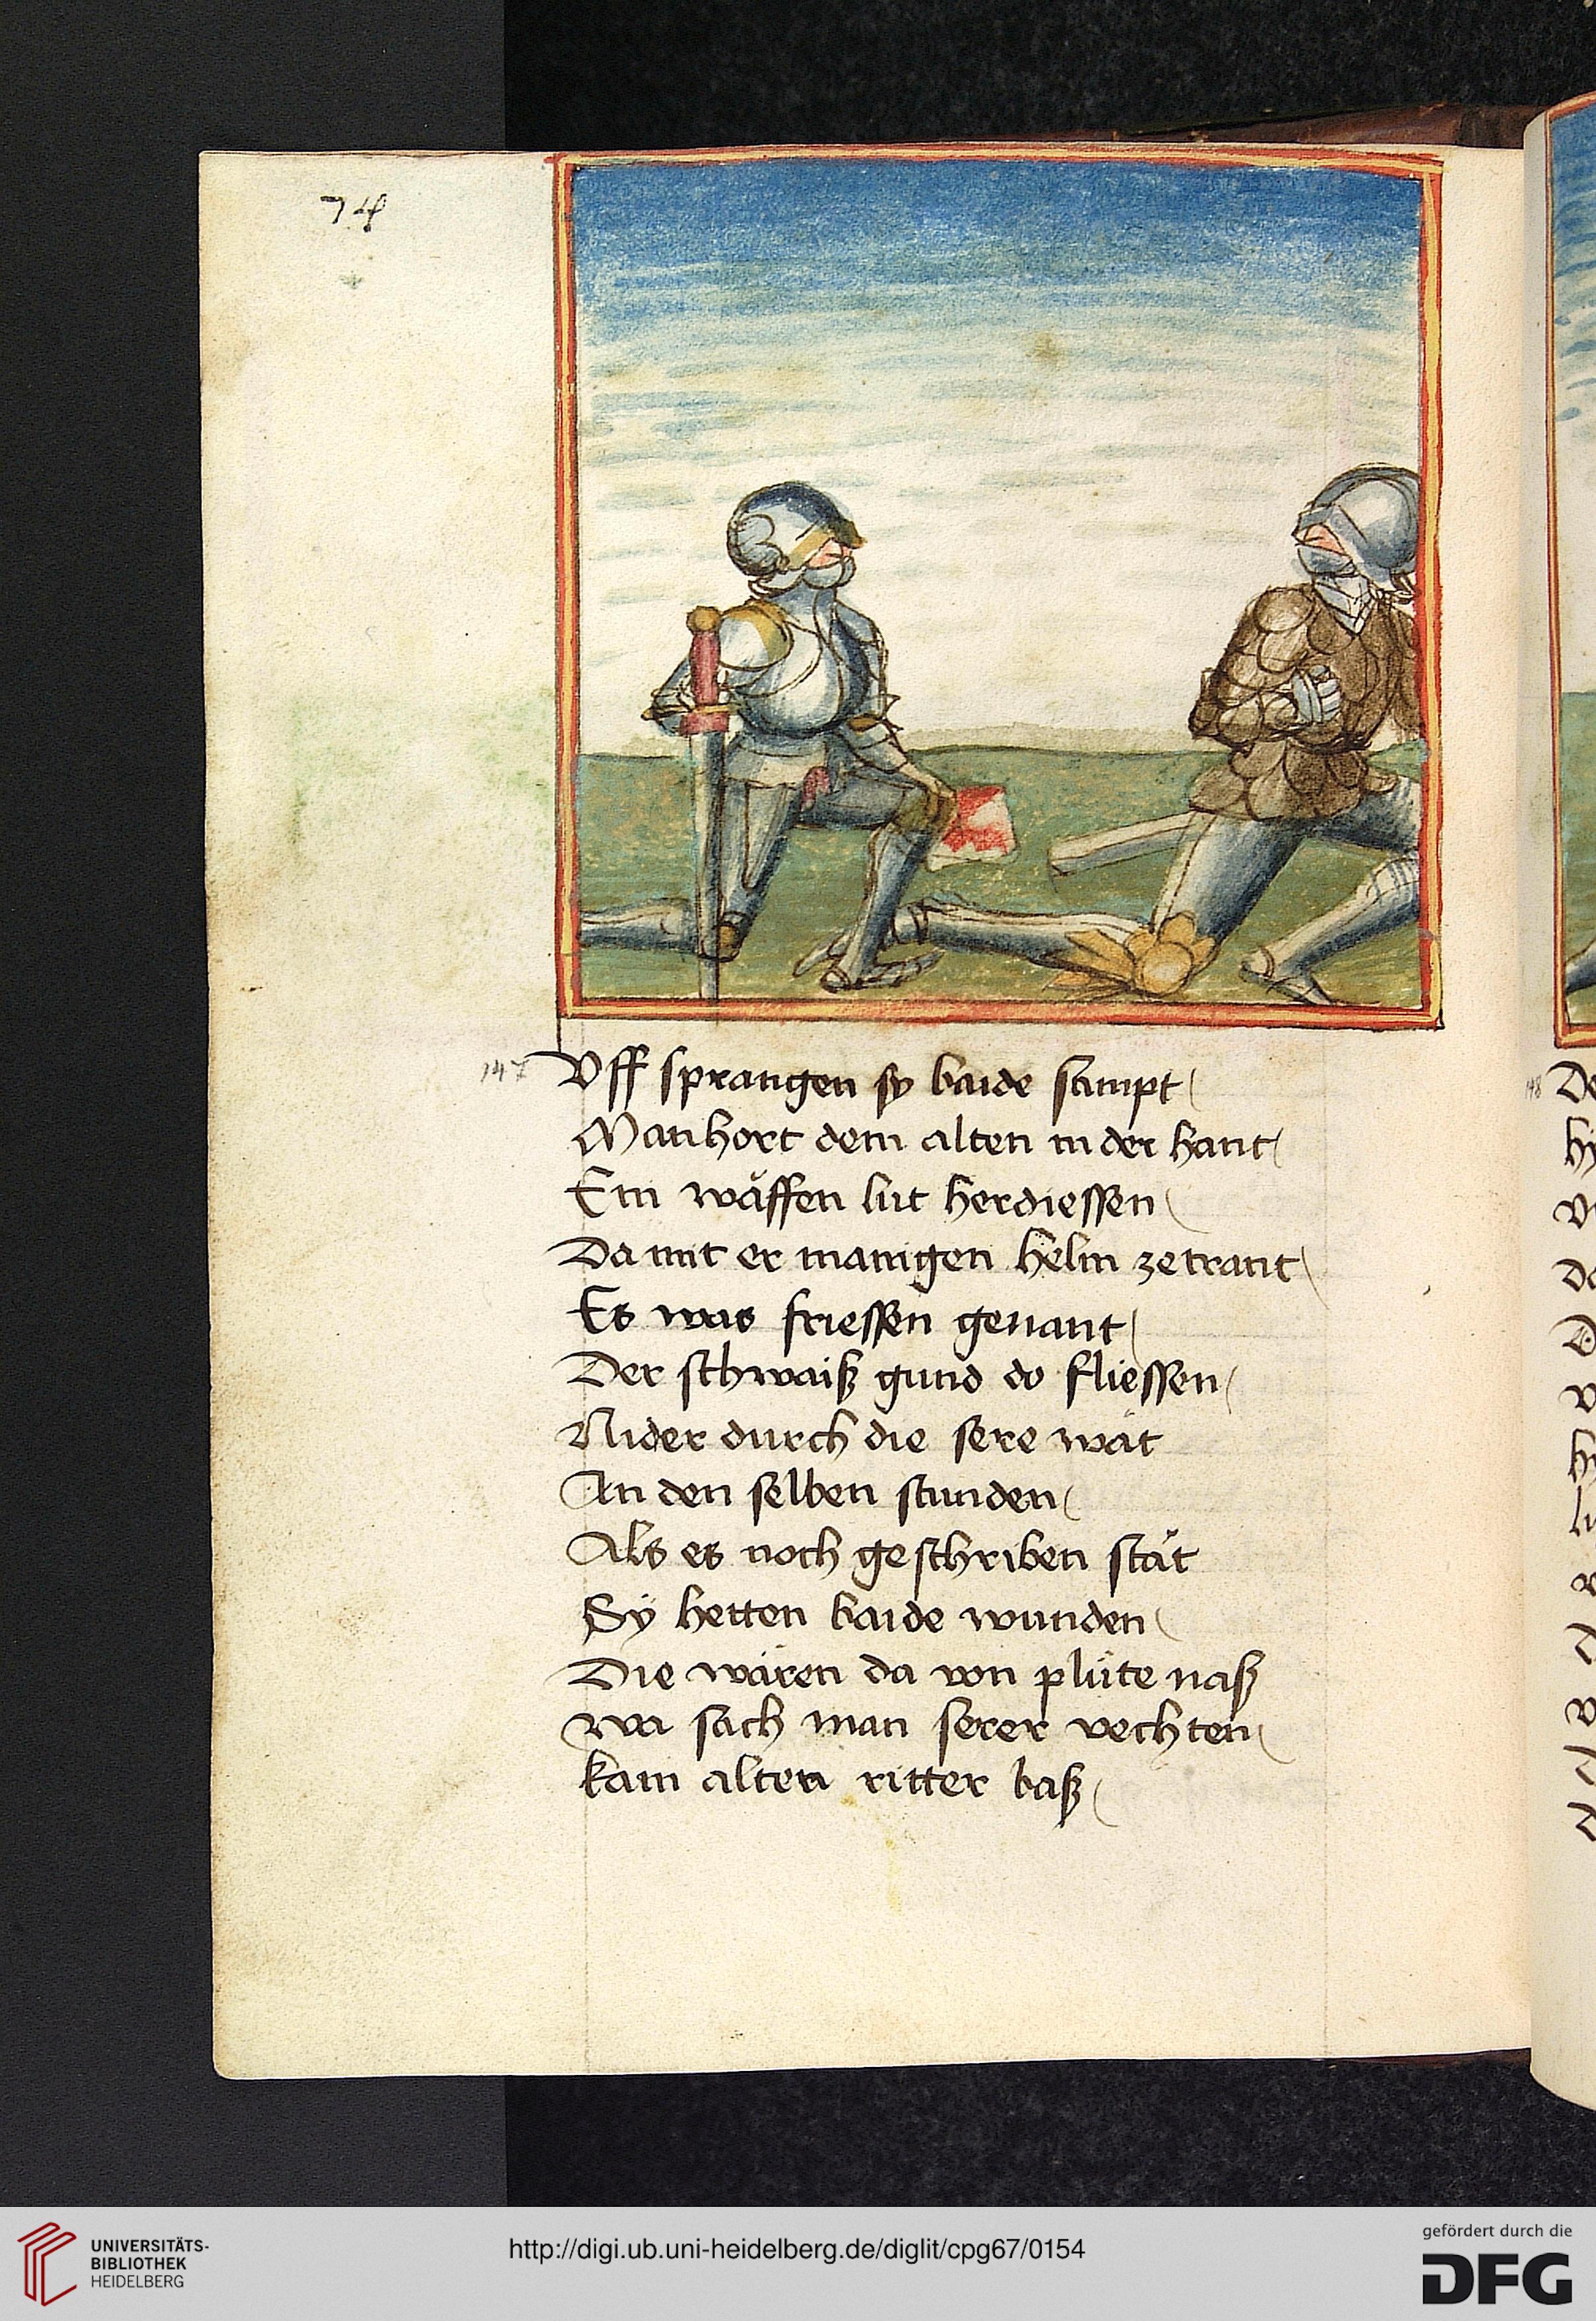 74
147
Vff sprangen sy baide sampt
Man hort dem alten in der hant
Ein wäffen lut herdiessen
Da mit er mänigen helm zetrant
Es was friessen genant
Der schwaiß gund do fliessen
Nider durch die sere wät
An den selben stunden
Als es noch geschriben stät
Sÿ hetten baide wunden
Die wären da von plüte naß
Wa sach man serer vechten
kain alten ritter baß
148
UNIVERSITÄTS-
BIBLIOTHEK
HEIDELBERG
http://digi.ub.uni-heidelberg.de/diglit/cpg67/0154
gefördert durch die
DFG